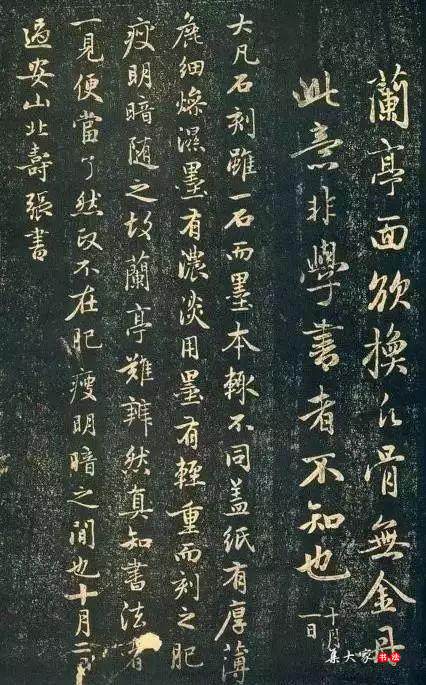 蘭亭面欲換凡骨無金丹
此意非學書者不知也
十月
一日
大凡石刻雖一石而墨本輒不同蓋紙有厚薄
麁細燥濕墨有濃淡用墨有輕重而刻之肥
瘦明暗随之故蘭亭難辨然真知書法者
一見便當了然政不在肥瘦明暗之間也十月二日
過安山北壽張書
集大家书法